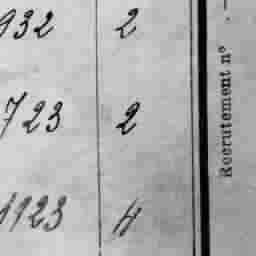 932 2
723 2
1123 4
Recrutement n°